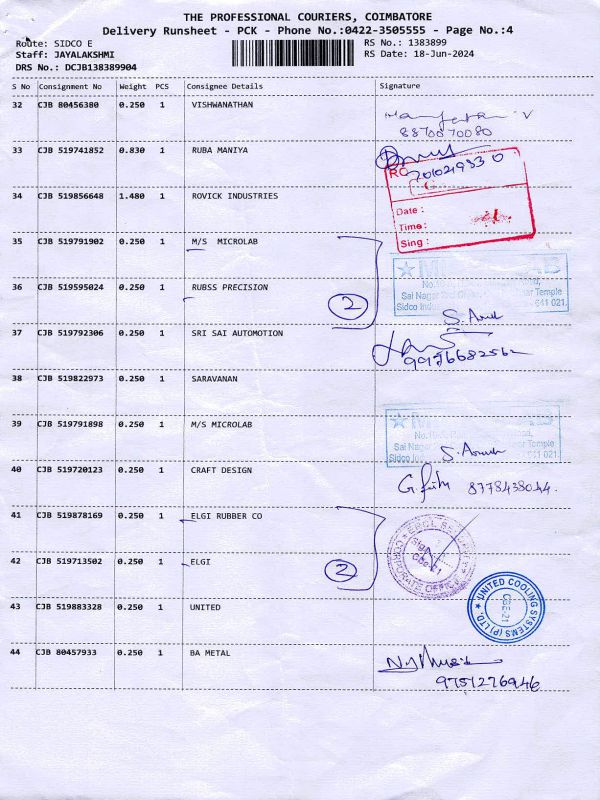 THE PROFESSIONAL COURIERS, COIMBATORE
Delivery Runsheet - PCK - Phone No.:0422-3505555 - Page No.:4
Route: SIDCO E
RS No.: 1383899
Staff: JAYALAKSHMI
RS Date: 18-Jun-2024
DRS No.: DCJB138389904
S No Consignment No Weight PCS Consignee Details Signature
32 CJB 80456380 0.250 1 VISHWANATHAN
8870070080
33 CJB 519741852 0.830 1 RUBA MANIYA
RC
34 CJB 519856648 1.480 1 ROVICK INDUSTRIES
Date :
Time:
Sing :
35 CJB 519791902 0.250 1 M/S MICROLAB
36 CJB 519595024 0.250 1 RUBSS PRECISION
2
Sai Nagar Temple
Sidco 641 021.
37 CJB 519792306 0.250 1 SRI SAI AUTOMOTION
38 CJB 519822973 0.250 1 SARAVANAN
39 CJB 519791898 0.250 1 M/S MICROLAB
Sai Nagar Temple
Sidco 641 021.
40 CJB 519720123 0.250 1 CRAFT DESIGN
8778438044.
41 CJB 519878169 0.250 1 ELGI RUBBER CO
42 CJB 519713502 0.250 1 ELGI
2
CORPORATE OFFICE
43 CJB 519883328 0.250 1 UNITED
UNITED COOLING SYSTEMS (P) LTD.
CBE-21
44 CJB 80457933 0.250 1 BA METAL
9751276946